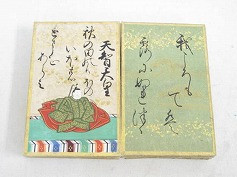 天智天皇
秋の田のかりほの
いほの
とまを
あらみ
我ころもては
露にぬれつゝ